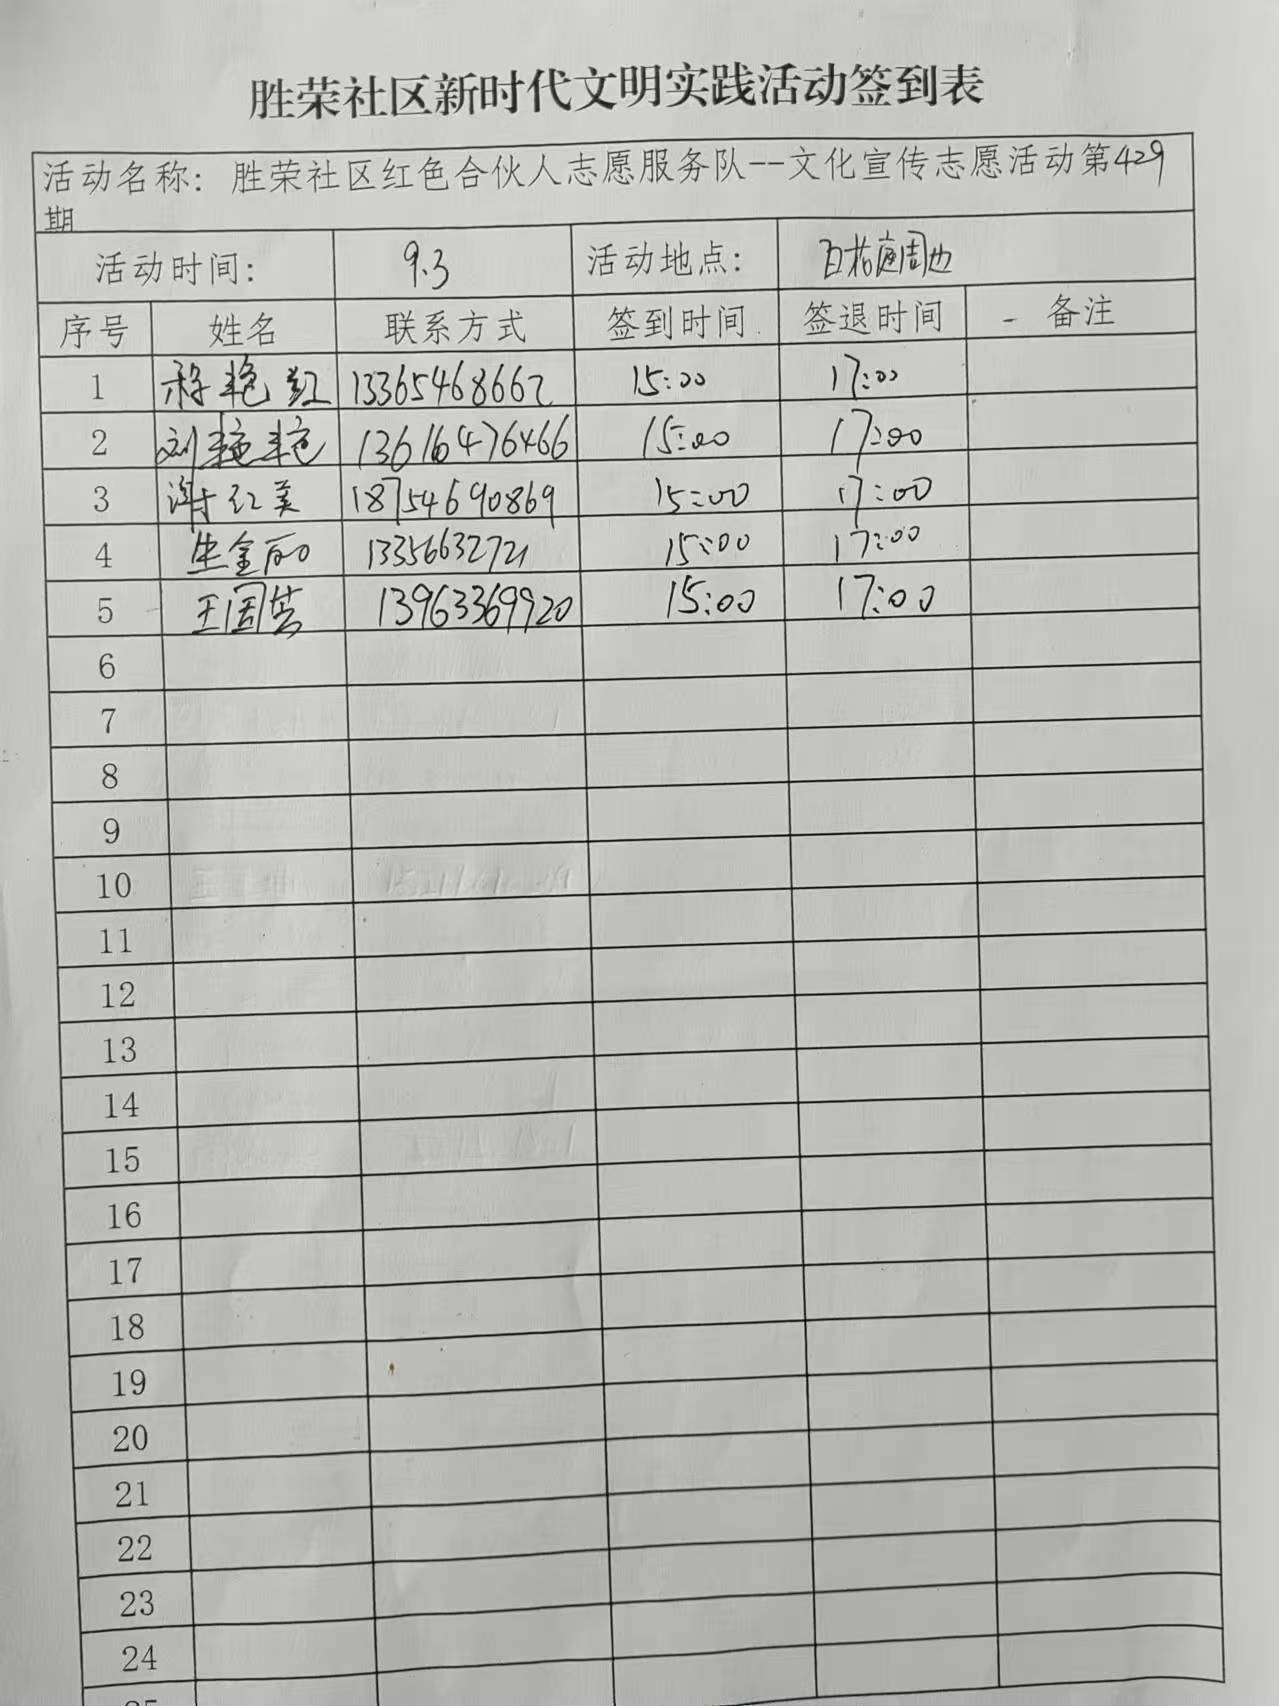 胜荣社区新时代文明实践活动签到表
活动名称：胜荣社区红色合伙人志愿服务队--文化宣传志愿活动第429
期
活动时间： 9.3 活动地点： 百桔庭周边
序号 姓名 联系方式 签到时间 签退时间 备注
1 艳红 13365468662 15:00 17:00
2 刘艳艳 13616476466 15:00 17:00
3 谢红美 18754690869 15:00 17:00
4 生金丽 13356632721 15:00 17:00
5 王国英 13963369920 15:00 17:00
6
7
8
9
10
11
12
13
14
15
16
17
18
19
20
21
22
23
24